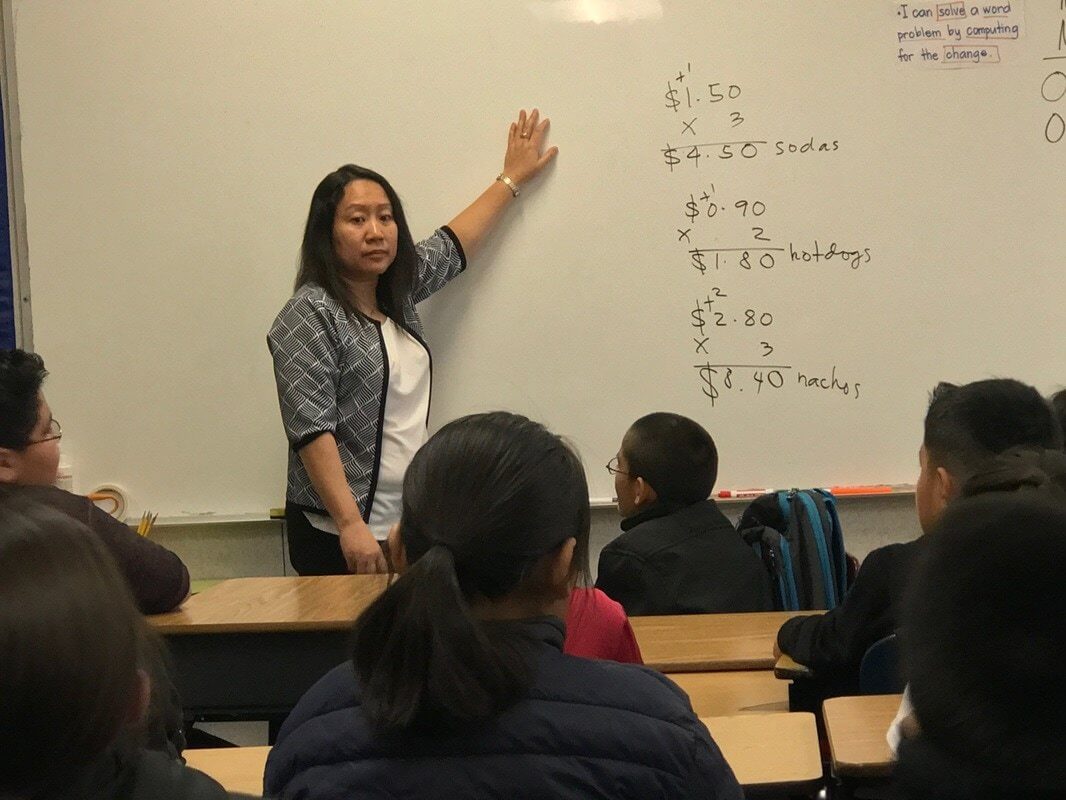 •I can solve a word
problem by computing
for the change.
+1
$1.50
x 3
$4.50 sodas
+1
$0.90
x 2
$1.80 hotdogs
+2
$2.80
x 3
$8.40 nachos
0
0